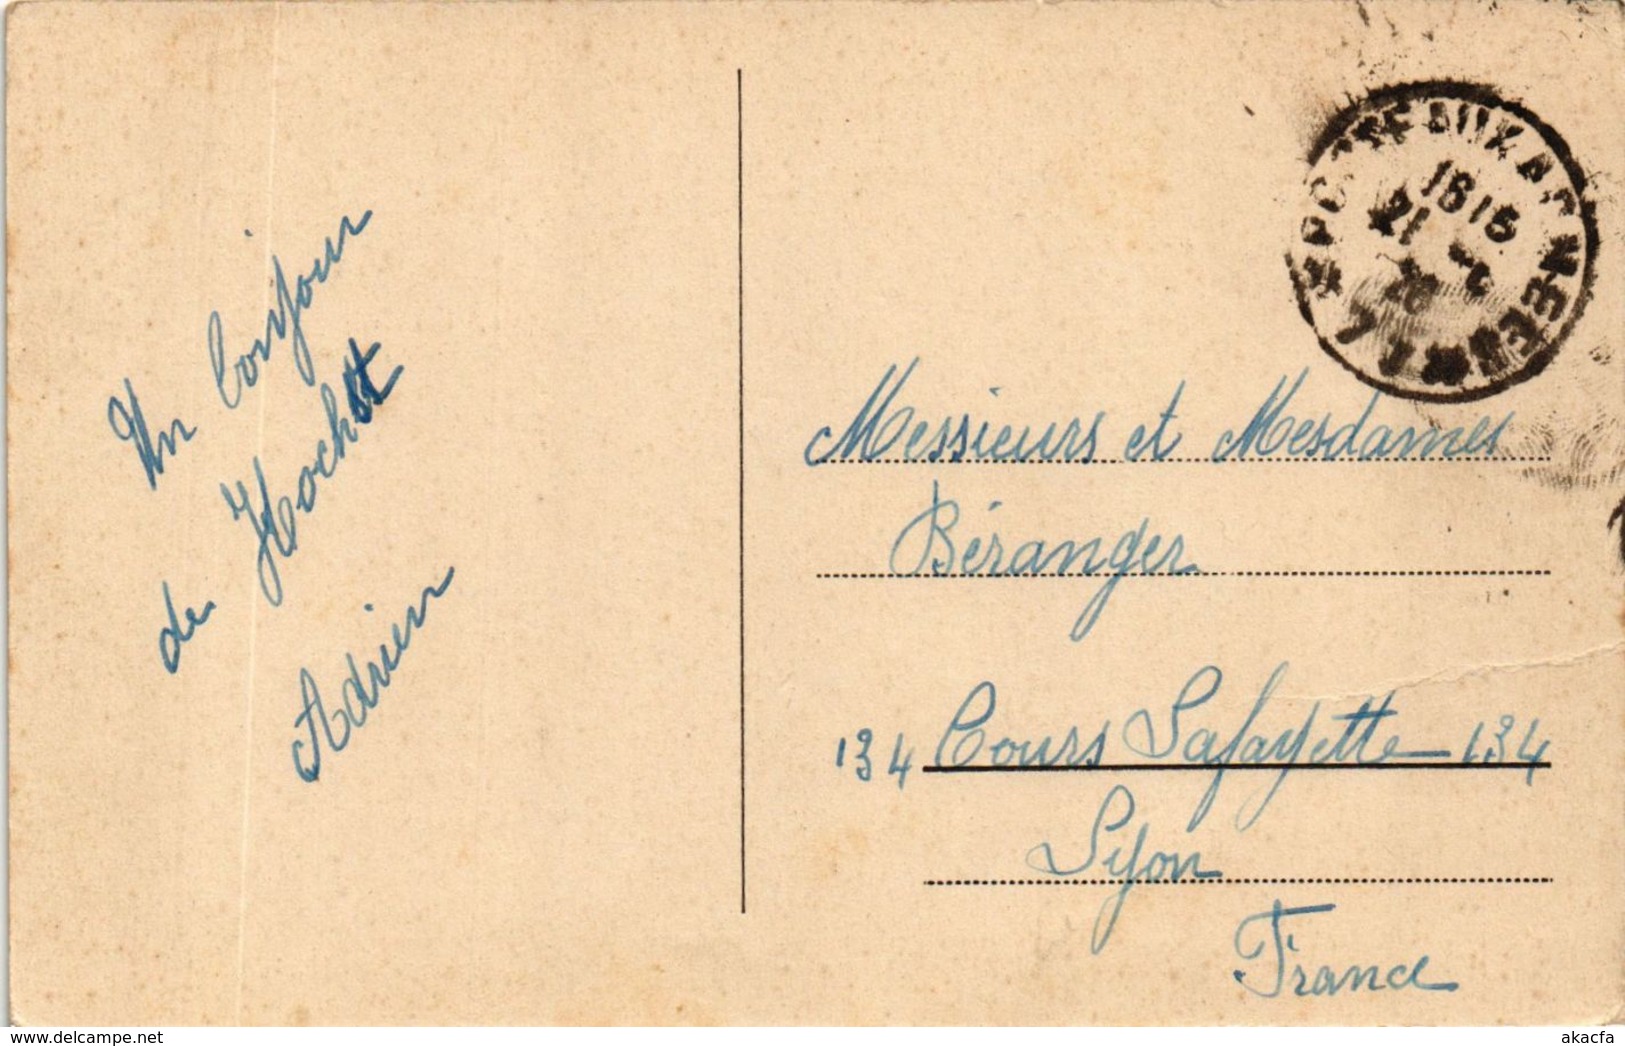 Un bonjour
de Hochst
Adrien
POSTE AUX ARMEES
1615
21
26
Messieurs et Mesdames
Béranger
134 Cours Lafayette - 134
Lyon
France
akacfa
delcampe.net